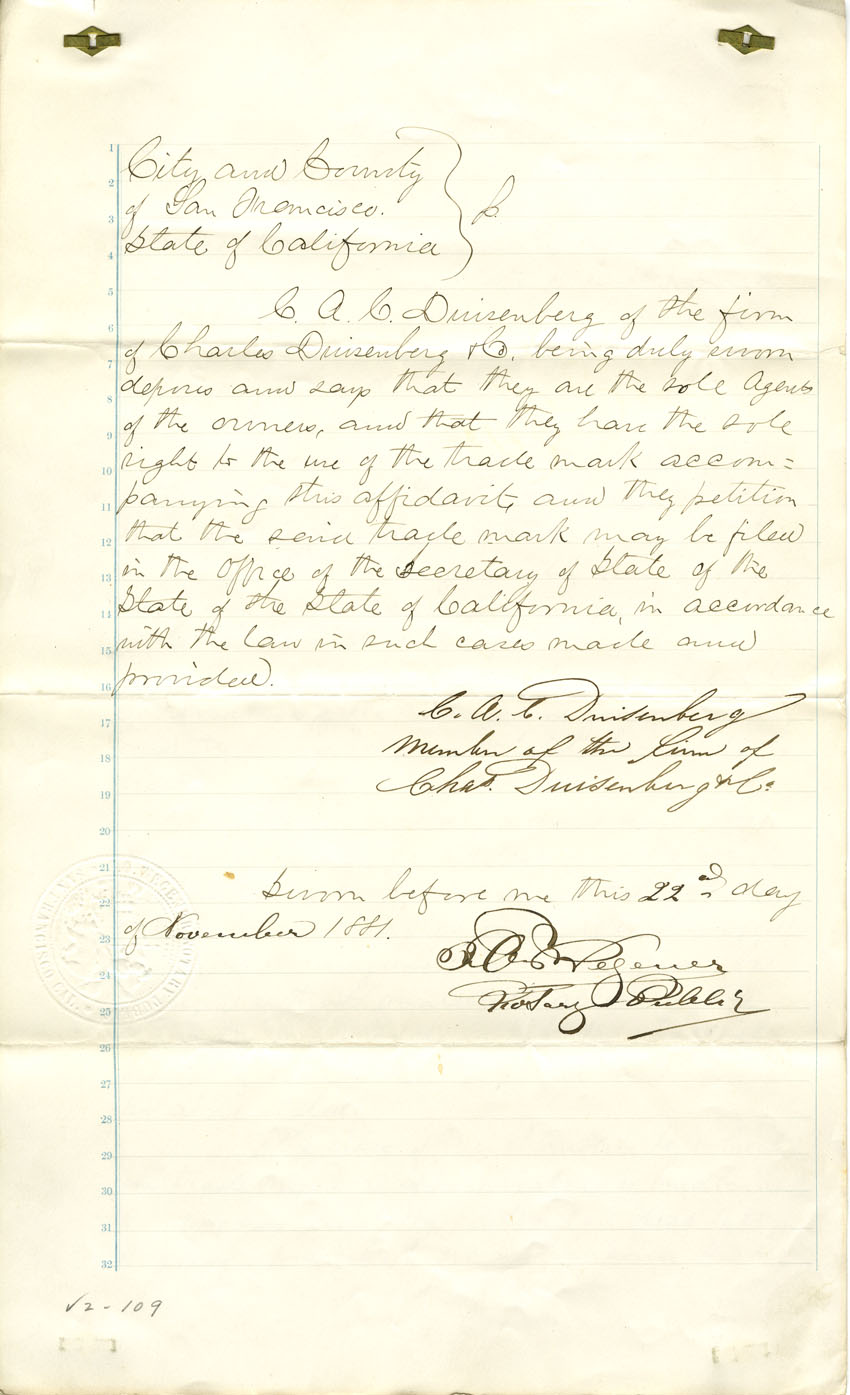 City and County
of San Francisco. } ss.
State of California
C. A. C. Duisenberg of the firm
of Charles Duisenberg & Co. being duly sworn
deposes and says that they are the sole Agents
of the owners, and that they have the sole
right to the use of the trade mark accom=
panying this affidavit, and they petition
that the said trade mark may be filed
in the Office of the Secretary of State of the
State of the State of California, in accordance
with the law in such cases made and
provided.
C. A. C. Duisenberg
Member of the Firm of
Chas. Duisenberg & Co
Sworn before me this 22nd day
of November 1881.
Wegener
Notary Public
1
2
3
4
5
6
7
8
9
10
11
12
13
14
15
16
17
18
19
20
21
22
23
24
25
26
27
28
29
30
31
32
V2-109